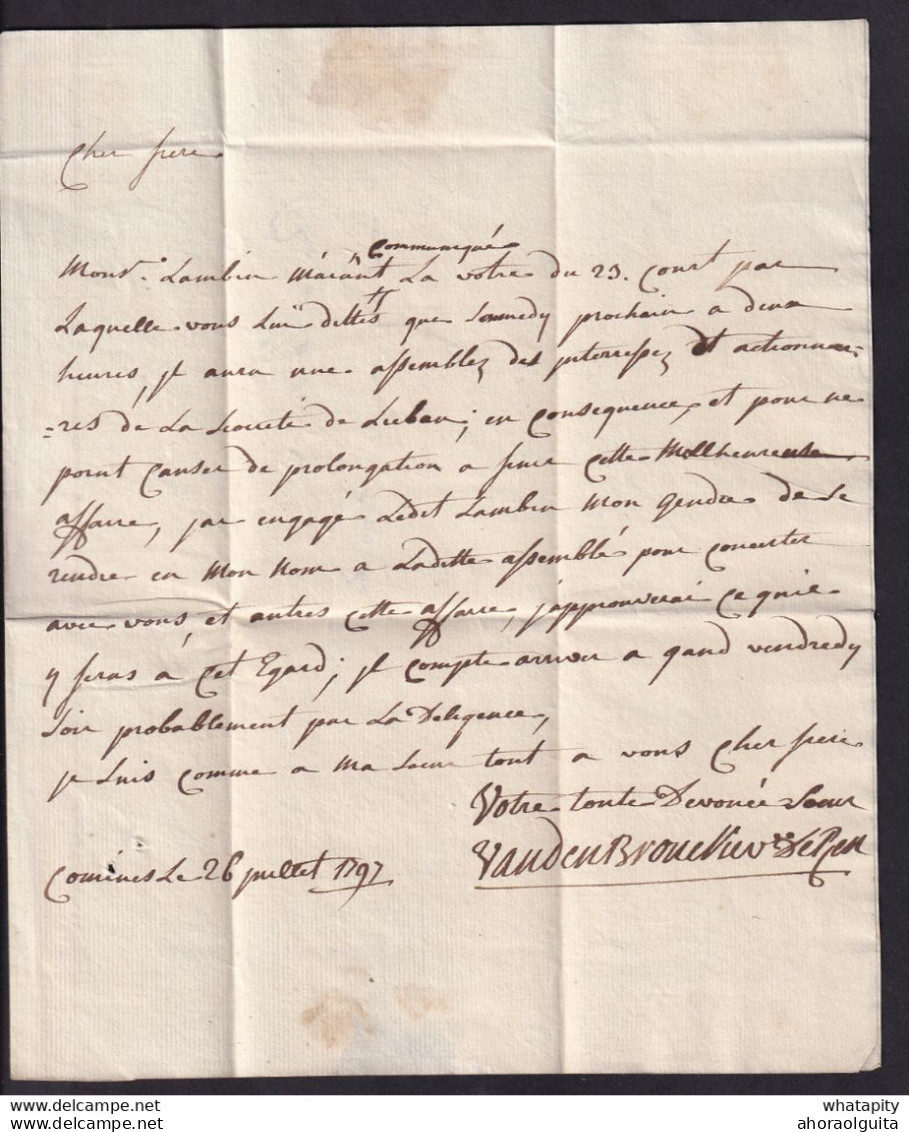 Cher frere
Communiqué
Monsr. Lambin M'aiant La votre du 23. Court par
Laquelle vous Lui dittes que Sammedy prochain a deux
heures, jl aura une assemblez des jnterressez Et actionnai=
=res de La Societé de; en consequence, et pour ne
point Causer de prolongation a finir cette Mallheureuse
affaire, jai engagé Ledit Lambin Mon Gendre de Se
rendre en Mon Nom a Laditte assemblé pour Concerter
avec vous, et autres cette affaire, j'approuverai ce qu'il
y feras à Cet Egard; je Compte arriver a gand vendredy
Soir probablement par La Deligence,
je Suis Comme a Ma Soeur tout a vous Cher frere
Votre toute Devouée Soeur
VandenBroucke v.ve
Comines Le 26 juillet 1797
whatapity
ahoraolguita